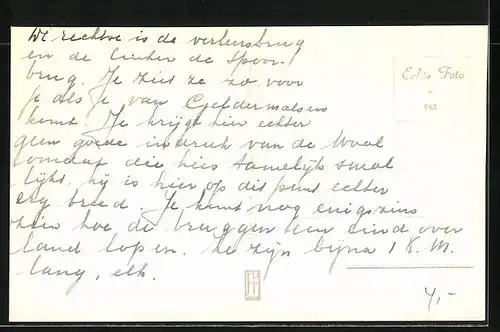 De rechtse is de verkeersbrug
en de linker de Spoor-
brug. Je ziet ze zo voor
je als je van Geldermalsen
komt. Je krijgt hier echter
geen goede indruk van de Waal
omdat die hier tamelijk smal
lijkt, hij is hier op dit punt echter
erg breed. Je kunt nog enigszins
zien hoe de bruggen een eind over
land lopen. Ze zijn bijna 1 K.M.
lang, elk.
Echte Foto
4,-